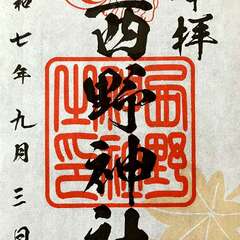 拝
西野神社
西野
之印
和七年九月三日